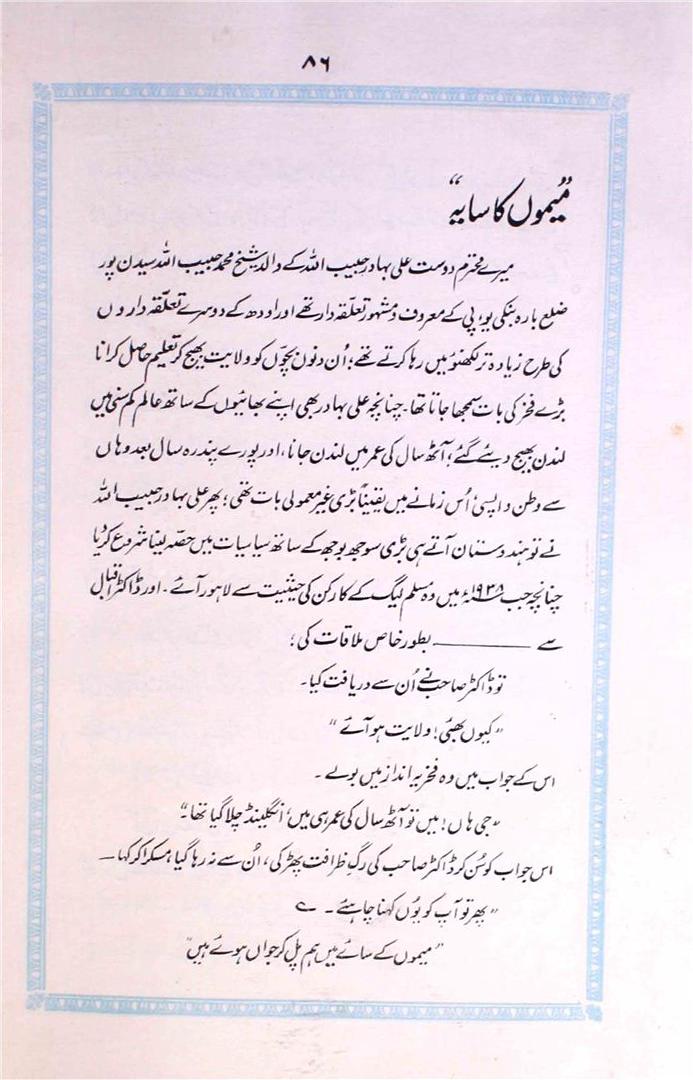 ۸۶
”میموں کا سایہ“
میرے محترم دوست علی بہادر حبیب اللہ کے والد شیخ محمد حبیب اللہ سیدن پور
ضلع بارہ بنکی یو۔پی کے معروف و مشہور تعلقہ دار تھے اور اودھ کے دوسرے تعلقہ داروں
کی طرح زیادہ تر لکھنؤ میں رہا کرتے تھے؛ اُن دنوں بچّوں کو ولایت بھیج کر تعلیم حاصل کرانا
بڑے فخر کی بات سمجھا جاتا تھا۔ چنانچہ علی بہادر بھی اپنے بھائیوں کے ساتھ عالم کم سنی میں
لندن بھیج دیئے گئے؛ آٹھ سال کی عمر میں لندن جانا، اور پورے پندرہ سال بعد وہاں
سے وطن واپسی اُس زمانے میں یقیناً بڑی غیر معمولی بات تھی؛ پھر علی بہادر حبیب اللہ
نے تو ہندوستان آتے ہی بڑی سوجھ بوجھ کے ساتھ سیاسیات میں حصّہ لینا شروع کر دیا
چنانچہ جب ۱۹۳۸ء میں وہ مسلم لیگ کے کارکن کی حیثیت سے لاہور آئے۔ اور ڈاکٹر اقبال
سے ــــــــــــ بطور خاص ملاقات کی؛
تو ڈاکٹر صاحب نے اُن سے دریافت کیا۔
”کیوں بھئی! ولایت ہو آئے“
اس کے جواب میں وہ فخریہ انداز میں بولے۔
”جی ہاں! میں تو آٹھ سال کی عمر ہی میں انگلینڈ چلا گیا تھا۔“
اس جواب کو سُن کر ڈاکٹر صاحب کی رگِ ظرافت پھڑکی، اُن سے نہ رہا گیا؛ مسکرا کر کہا ــ
”پھر تو آپ کو یوں کہنا چاہئے۔ ے
”میموں کے سائے میں ہم پل کر جواں ہوئے ہیں“